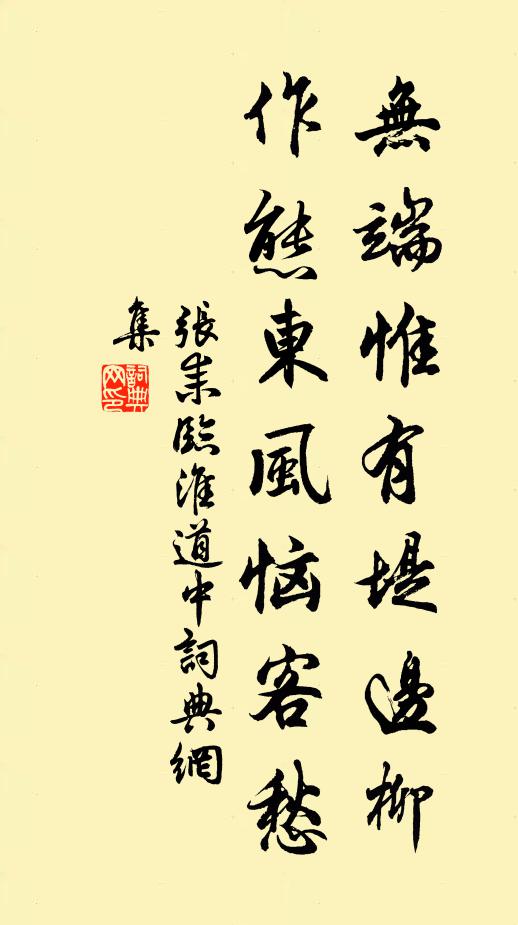 無端惟有堤邊柳
作態東風恼客愁
張耒臨淮道中詞典網
集
詞典网印